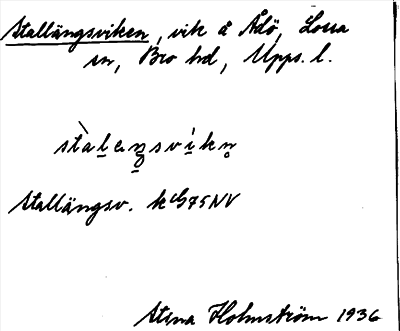 Stallängsviken, vik å Ådö, Lossa
sn, Bro hd, Upps. l.
stàlæŋsvìkn̥
Stallängsv. k G75NV
Stina Holmström 1936